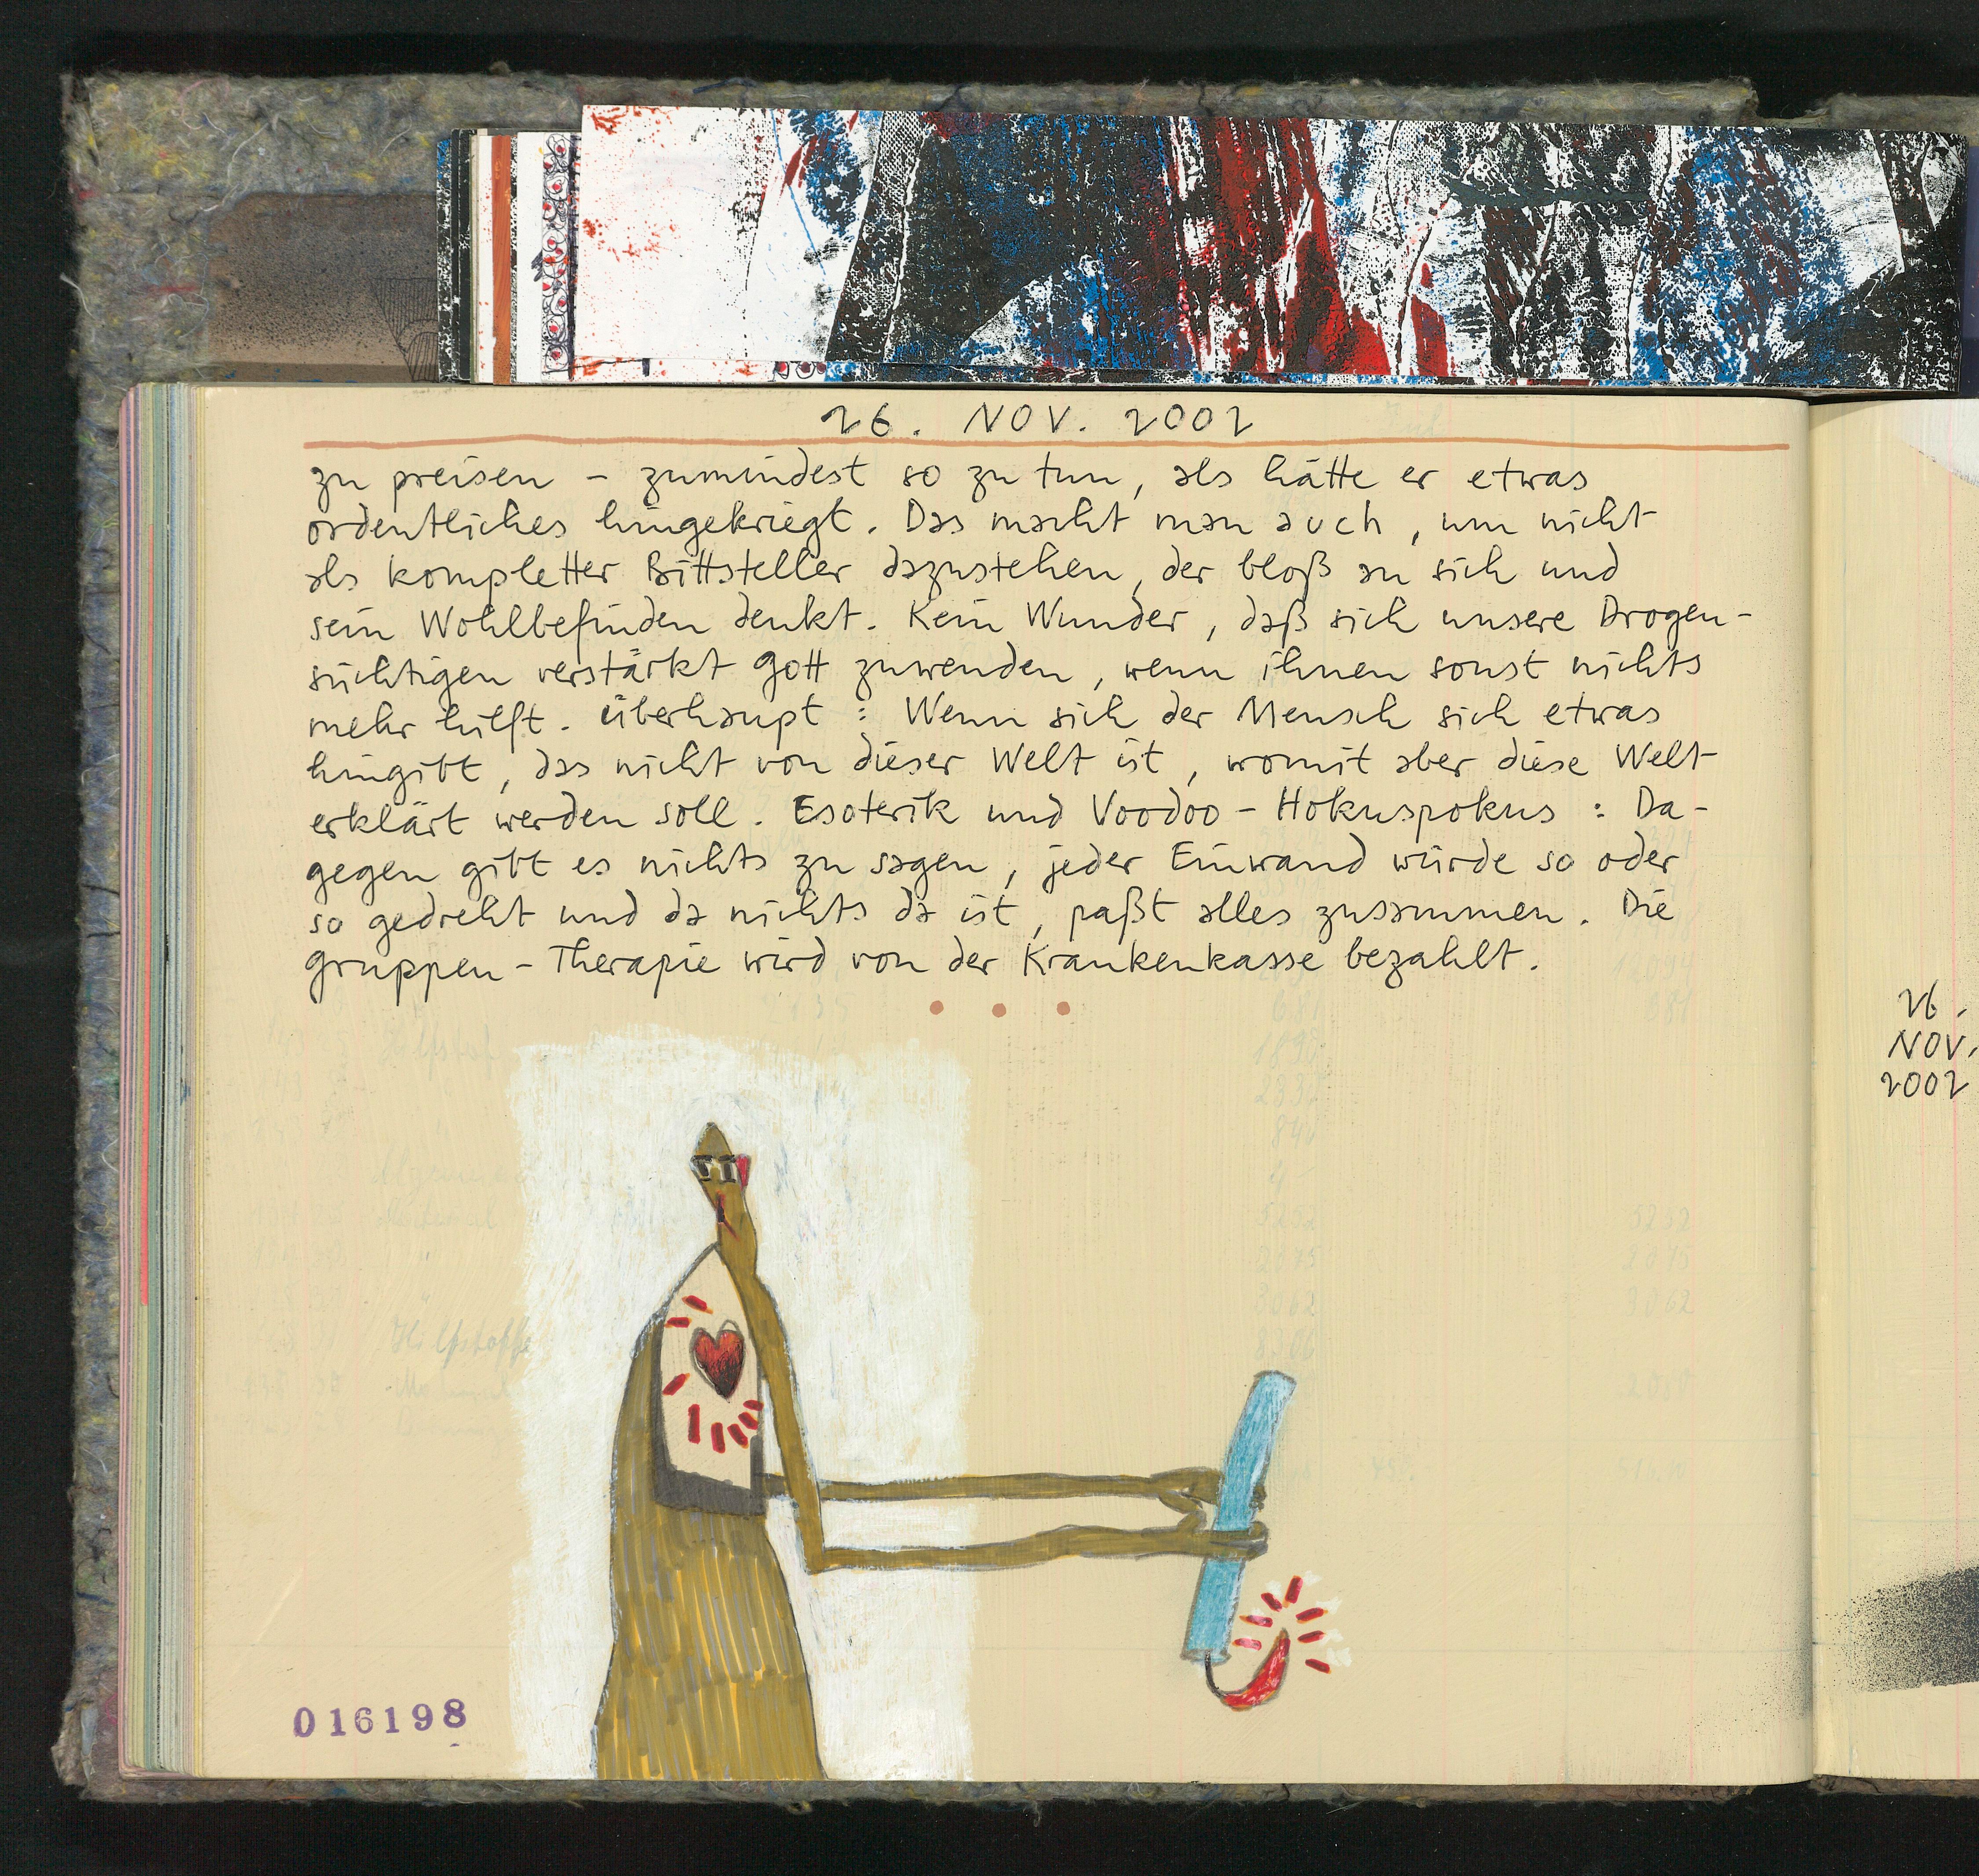 26. NOV. 2002
zu preisen – zumindest so zu tun, als hätte er etwas
ordentliches hingekriegt. Das macht man auch, um nicht
als kompletter Bittsteller dazustehen, der bloß an sich und
sein Wohlbefinden denkt. Kein Wunder, daß sich unsere Drogen-
süchtigen verstärkt Gott zuwenden, wenn ihnen sonst nichts
mehr hilft. Überhaupt : Wenn sich der Mensch sich etwas
hingibt, das nicht von dieser Welt ist, womit aber diese Welt
erklärt werden soll. Esoterik und Voodoo – Hokuspokus : Da-
gegen gibt es nichts zu sagen, jeder Einwand würde so oder
so gedreht und da nichts da ist, paßt alles zusammen. Die
Gruppen – Therapie wird von der Krankenkasse bezahlt.
• • •
016198
26.
NOV.
2002